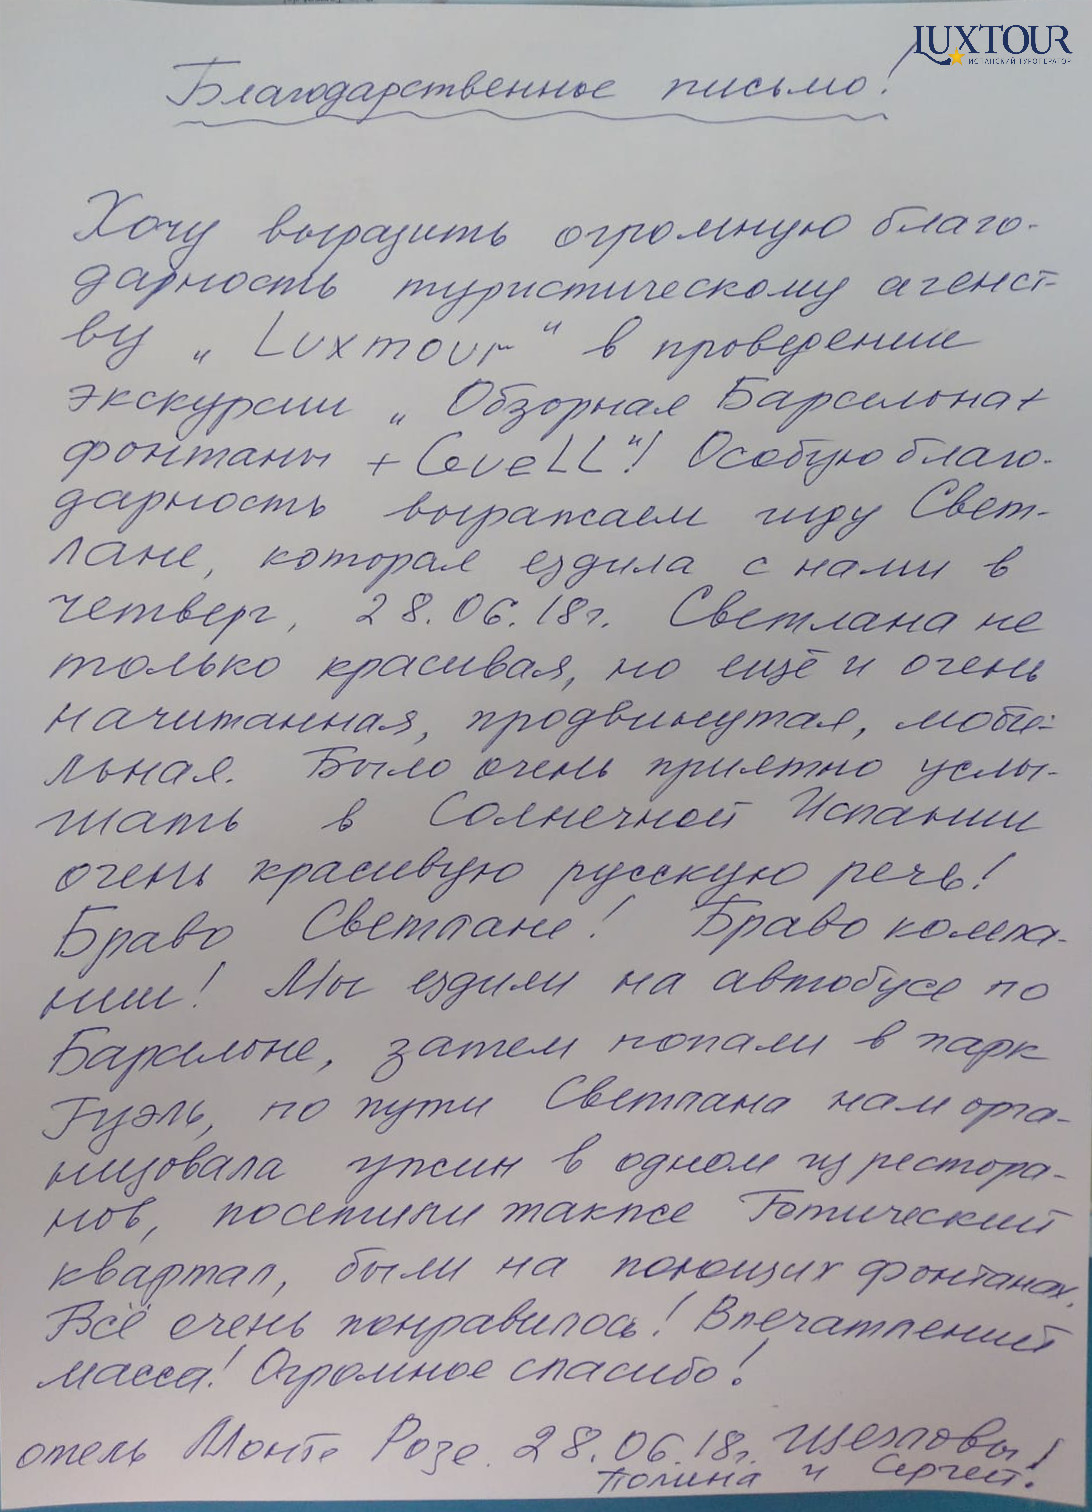 LUXTOUR
ИСПАНСКИЙ ТУРОПЕРАТОР
Благодарственное письмо!
Хочу выразить огромную благо-
дарность туристическому агенст-
ву „Luxtour" в проведении
экскурсии „Обзорная Барселона+
фонтаны +Guell"! Особую благо-
дарность выражаем гиду Свет-
лане, которая ездила с нами в
четверг, 28.06.18г. Светлана не
только красивая, но ещё и очень
начитанная, продвинутая, моби-
льная. Было очень приятно услы-
шать в Солнечной Испании
очень красивую русскую речь!
Браво Светлане! Браво компа-
нии! Мы ездили на автобусе по
Барселоне, затем попали в парк
Гуэль, по пути Светлана нам орга-
низовала ужин в одном из рестора-
нов, посетили также Готический
квартал, были на поющих фонтанах.
Всё очень понравилось! Впечатлений
масса! Огромное спасибо!
отель Монте Розе. 28.06.18г.
Полина и Сергей.